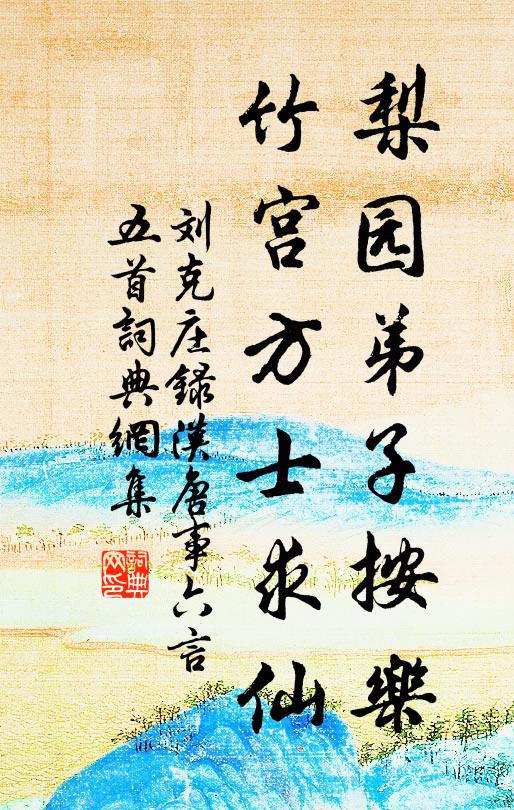 梨园弟子按樂
竹宫方士求仙
刘克庄録漢唐事六言
五首詞典網集
詞典
网印